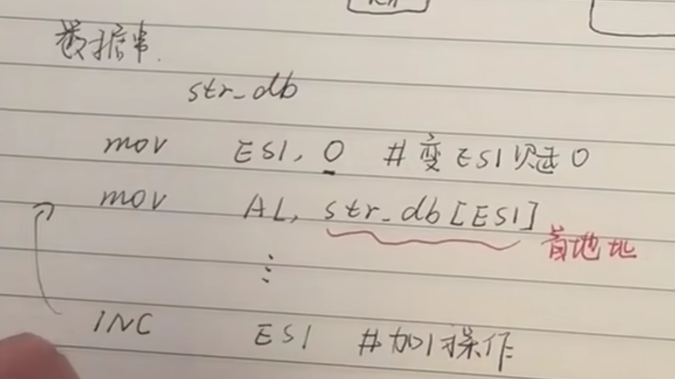 数据串.
str_db
mov ESI, 0 #变ESI 0
mov AL, str_db[ESI]
首地址
⋮
INC ESI #加1操作